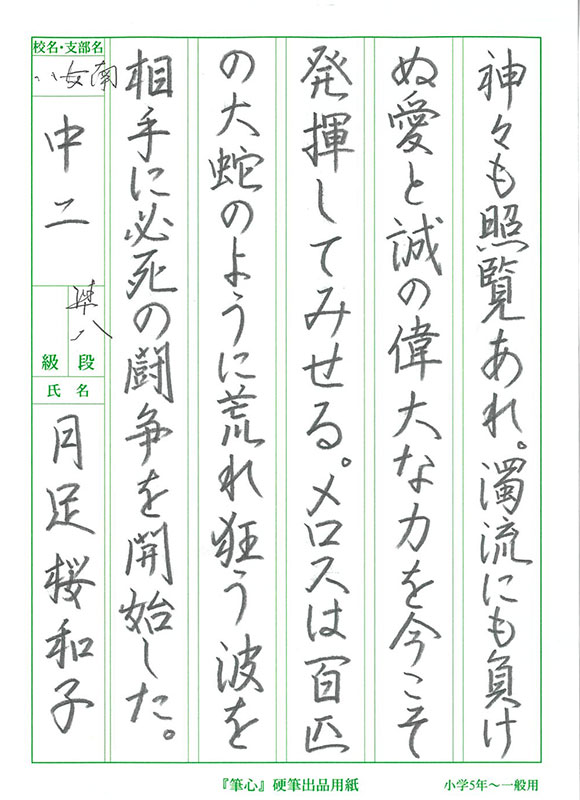 神々も照覧あれ。濁流にも負け
ぬ愛と誠の偉大な力を今こそ
発揮してみせる。メロスは百匹
の大蛇のように荒れ狂う波を
相手に必死の闘争を開始した。
校名・支部名
八女南
中二
準八
段
級
氏名
月足桜和子
『筆心』硬筆出品用紙
小学5年〜一般用